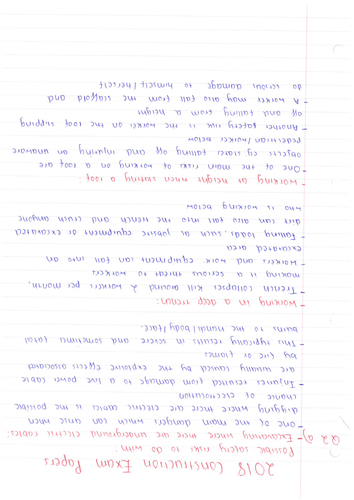 2018 Construction Exam Papers
Possible safety risks to do with:
Q2 a) Excavating where there are underground electric cables:
- One of the main dangers which can arise when
digging where there are electric cables is the possible
chance of electrocution
- Injuries resulted from damage to a live power cable
are usually caused by the explosive effects associated
by fire or flames
- This typically results in severe and sometimes fatal
burns to the hands/body/face.
Working in a deep trench:
- Trench collapses kill around 2 workers per month,
making it a serious threat to workers
- Workers and work equipment can fall into an
excavated area
- Falling loads, such as jobsite equipment or excavated
dirt can also fall into the trench and crush anyone
who is working below
Working at height when slating a roof:
- One of the main risks to working on a roof are
objects eg slates falling off and injuring an unaware
pedestrian/worker below
- Another safety risk is the worker on the roof slipping
off and falling from a height
- A worker may also fall from the scaffold and
do serious damage to himself/herself